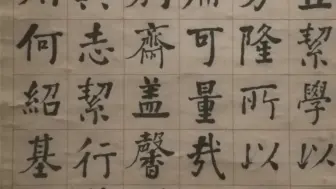 絜學以
隆所以
可量哉
齋盖馨
志絜行
何紹基